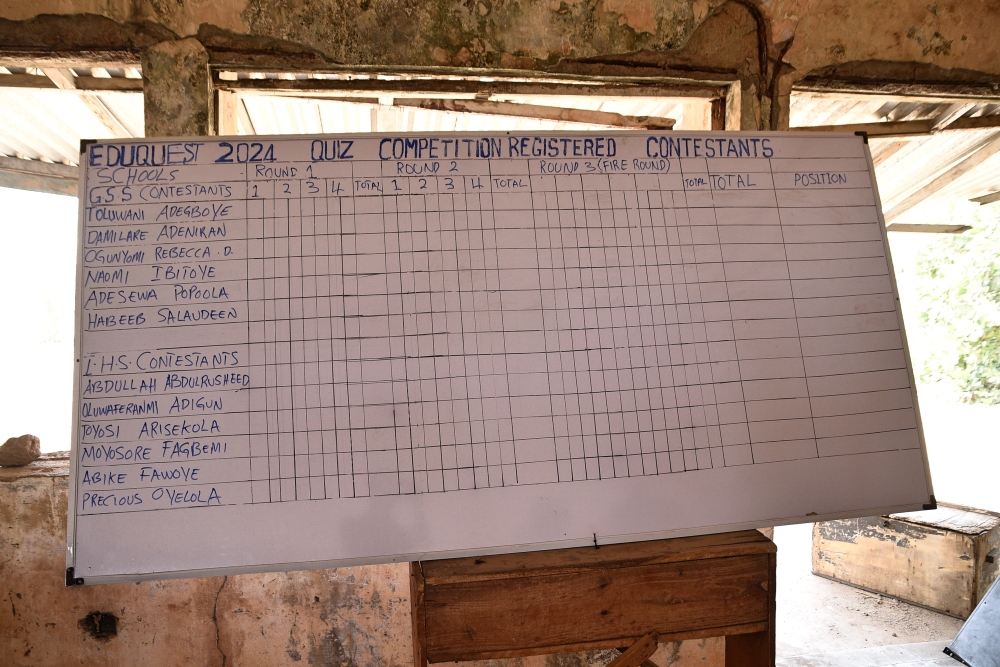 EDUQUEST 2024 QUIZ COMPETITION REGISTERED CONTESTANTS
SCHOOLS ROUND 1 ROUND 2 ROUND 3 (FIRE ROUND)
G.S.S CONTESTANTS 1 2 3 4 TOTAL 1 2 3 4 TOTAL TOTAL TOTAL POSITION
TOLUWANI ADEGBOYE
DAMILARE ADENIRAN
OGUNYOMI REBECCA .D.
NAOMI IBITOYE
ADESEWA POPOOLA
HABEEB SALAUDEEN
I.H.S. CONTESTANTS
ABDULLAH ABDULRUSHEED
OLUWAFERANMI ADIGUN
TOYOSI ARISEKOLA
MOYOSORE FAGBEMI
ABIKE FAWOYE
PRECIOUS OYELOLA